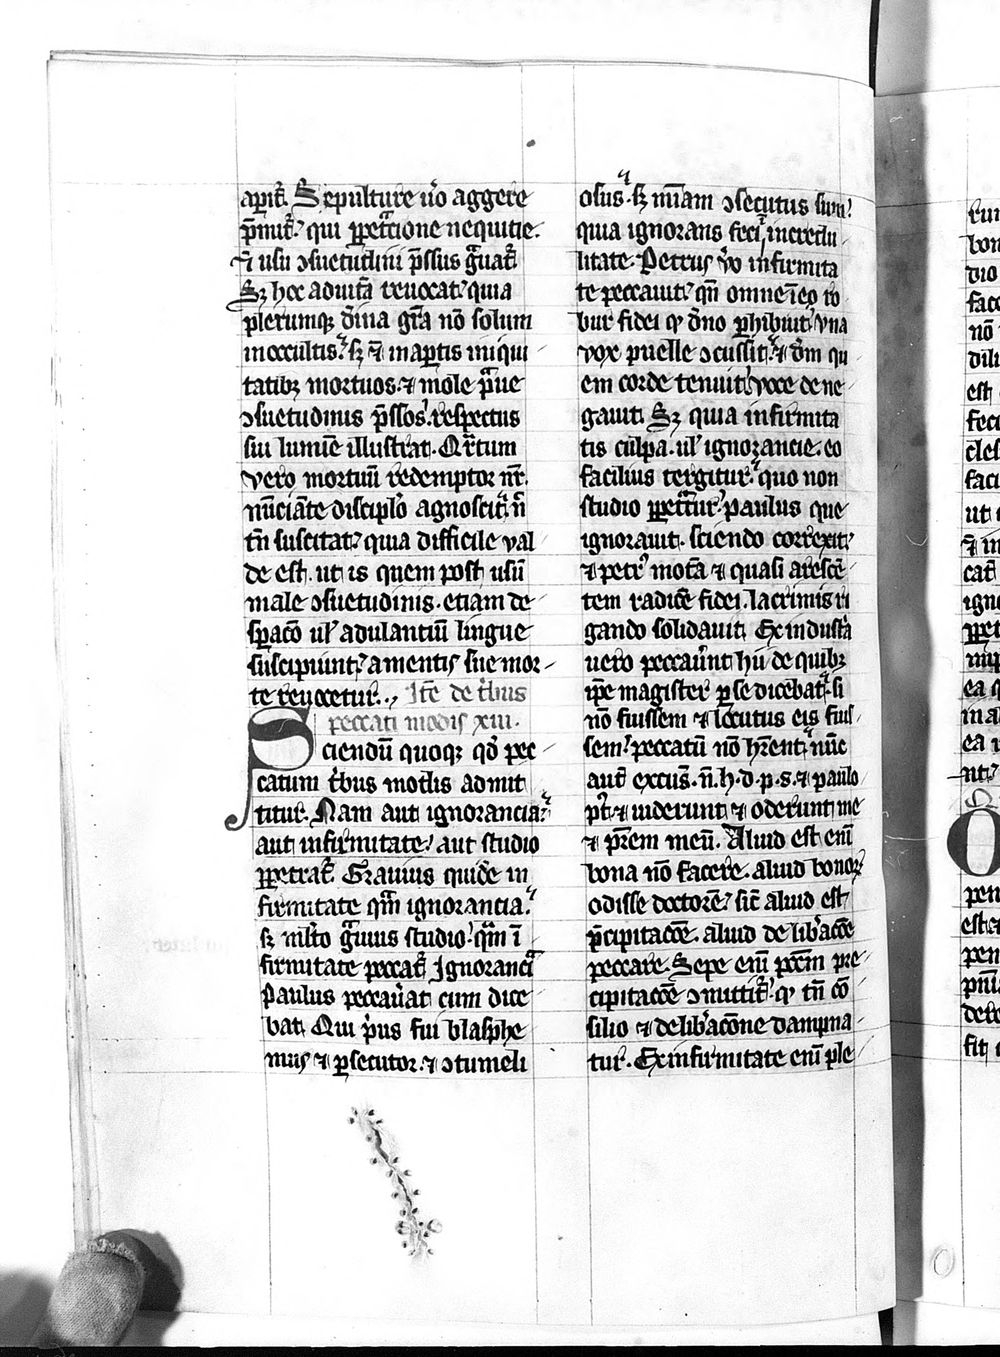 aꝑit̄. Sepulture u̾o aggere
p̄mit̄. qui ꝑpetͣcione nequitie.
⁊ ī usu ↄsuetudini p̄ssus gͣuat̄
Sꝫ hoc ad uitā reuocat. quia
plerumqꝫ diuīa gr̄a nō solum
in occultis. sꝫ ⁊ in aꝑtis iniqui
tatibꝫ mortuos. ⁊ mole pͣue
ↄsuetudinis p̄ssos. respectus
sui lumīe illustrat. Qͣrtum
vero mortuū redemptor nr̄.
nūciāte disciplo agnoscit. n̄
tn̄ suscitat. quia difficile val
de est. ut is quem post usū
male ↄsuetudinis. etiam de
tͣcō ul̓ adulantiū lingue
suscipiunt. a mentis sue mor
te reuocetur. Itē de tͥbus
peccati modis xiii.
Sciendū quoqꝫ qd̓ pec
catum tͥbus modis admit
titur. Nam aut ignorancia.
aut infirmitate. aut studio
ꝑpetrat̄. Grauius quidē in
firmitate qͣm ignorancia.
sꝫ mlto gͣuius studio. qͣm ī
firmitate peccat̄. Ignorancͣ
Paulus peccau̾at cum dice
bat. Qui pͥus fui blasphe
mus ⁊ ꝑsecutor. ⁊ ↄtumeli
osus. sꝫ miām ↄsecutus sum.
quia ignorans feci in incredu
litate. Petrus u̾o infirmita
te peccauit. qn̄ omne ī eo ro
bur fidei qͦ dn̄o ꝑhibuit. vna
vox puelle ↄcussit. ⁊ dm̄ qu
em corde tenuit. voce de ne
gauit. Sꝫ quia infirmita
tis culpa. ul̓ ignorancie. eo
facilius tergitur. quo non
studio ꝑpetͣtur. paulus que
ignorauit. sciendo correxit.
⁊ petr̓ motā ⁊ quasi arescē
tem radicē fidei. lacrimis ri
gando solidauit. Ex industͥa
uero peccau̾unt hii de quibꝫ
ip̄e magister ꝑ se dicebat. si
nō fuissem ⁊ locutus eis fuis
sem. peccatū nō hr̄ent. nūc
aut̄ excus̄. n̄. h. d. p. s. ⁊ paulo
pͦt. ⁊ uiderunt ⁊ oderunt me
⁊ pr̄em meū. Aliud est enī
bona nō facere. aliud bonoꝝ
odisse doctorē. sic̄ aliud est
p̄cipitacōe. aliud delib̓acōe
peccare. Sepe enī pctm̄ pre
cipitacōe ↄmittit̄. qͦ tn̄ cō
silio ⁊ delib̓acōne dampna
tur. Ex infirmitate enī ple